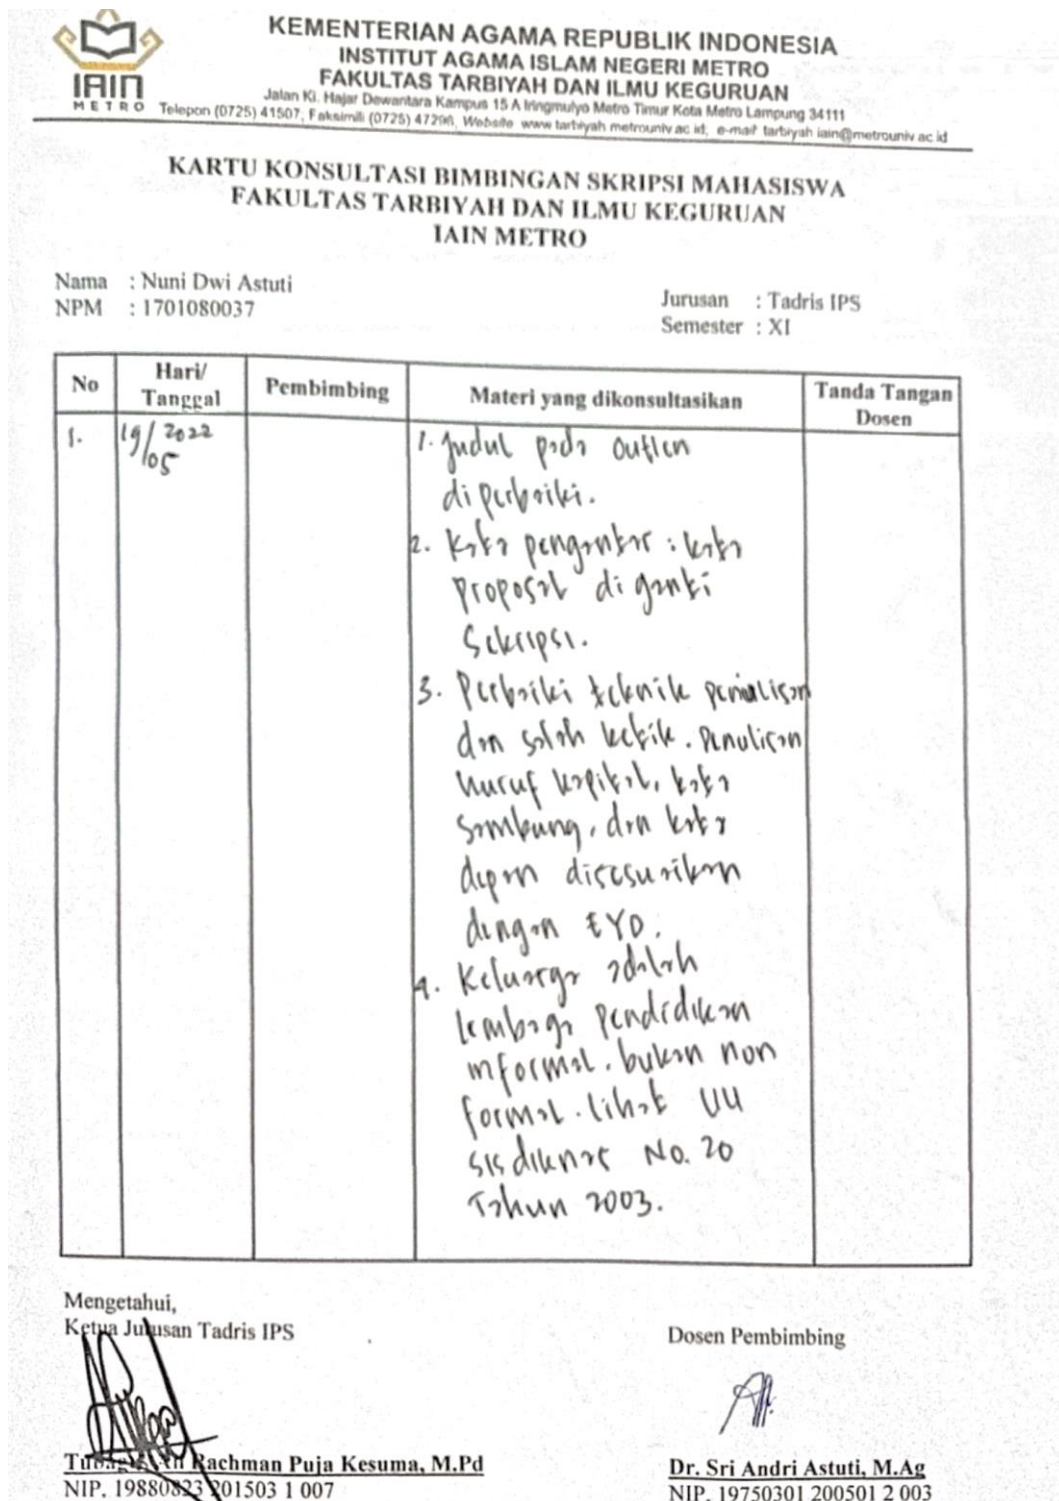 IAIN
METRO
KEMENTERIAN AGAMA REPUBLIK INDONESIA
INSTITUT AGAMA ISLAM NEGERI METRO
FAKULTAS TARBIYAH DAN ILMU KEGURUAN
Jalan Ki. Hajar Dewantara Kampus 15 A Iringmulyo Metro Timur Kota Metro Lampung 34111
Telepon (0725) 41507; Faksimili (0725) 47296; Website: www.tarbiyah.metrouniv.ac.id; e-mail: tarbiyah.iain@metrouniv.ac.id
KARTU KONSULTASI BIMBINGAN SKRIPSI MAHASISWA
FAKULTAS TARBIYAH DAN ILMU KEGURUAN
IAIN METRO
Nama : Nuni Dwi Astuti
NPM : 1701080037
Jurusan : Tadris IPS
Semester : XI
No
Hari/
Tanggal
Pembimbing
Materi yang dikonsultasikan
Tanda Tangan
Dosen
1.
19/05 2022
1. Judul pada outlen
diperbaiki.
2. Kata pengantar : kata
proposal di ganti
Sekripsi.
3. Perbaiki teknik penulisan
dan salah ketik. Penulisan
huruf kapital, kata
sambung, dan kata
depan disesuaikan
dengan EYD.
4. Keluarga adalah
lembaga pendidikan
informal. bukan non
formal. lihat UU
sisdiknas No. 20
Tahun 2003.
Mengetahui,
Ketua Jurusan Tadris IPS
Rachman Puja Kesuma, M.Pd
NIP. 19880823 201503 1 007
Dosen Pembimbing
Dr. Sri Andri Astuti, M.Ag
NIP. 19750301 200501 2 003